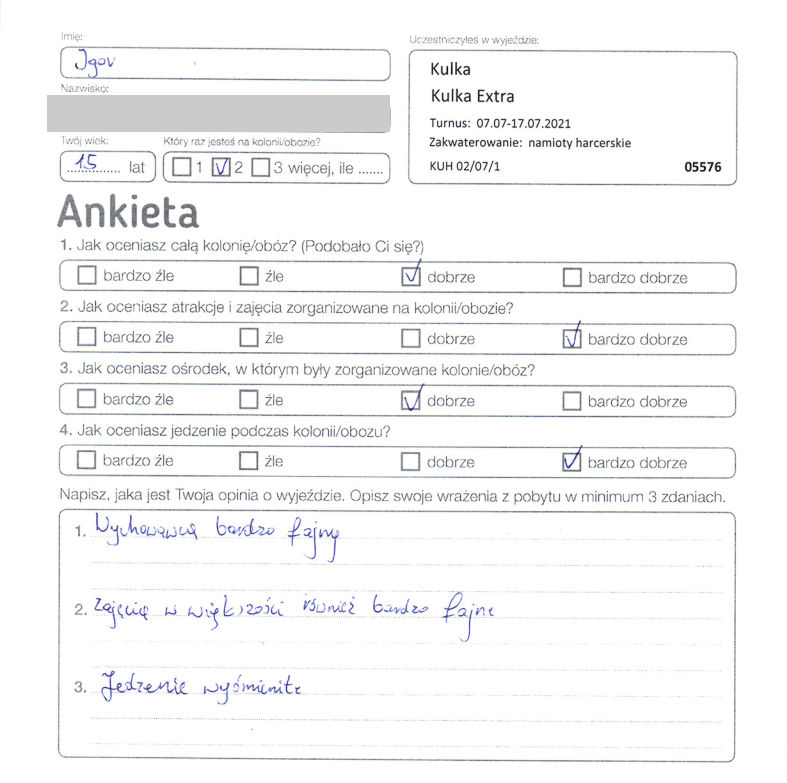 Imię:
Igor
Nazwisko:
Twój wiek:
15 lat
Który raz jesteś na kolonii/obozie?
1 2 3 więcej, ile .......
Uczestniczyłeś w wyjeździe:
Kulka
Kulka Extra
Turnus: 07.07-17.07.2021
Zakwaterowanie: namioty harcerskie
KUH 02/07/1 05576
Ankieta
1. Jak oceniasz całą kolonię/obóz? (Podobało Ci się?)
bardzo źle źle dobrze bardzo dobrze
2. Jak oceniasz atrakcje i zajęcia zorganizowane na kolonii/obozie?
bardzo źle źle dobrze bardzo dobrze
3. Jak oceniasz ośrodek, w którym były zorganizowane kolonie/obóz?
bardzo źle źle dobrze bardzo dobrze
4. Jak oceniasz jedzenie podczas kolonii/obozu?
bardzo źle źle dobrze bardzo dobrze
Napisz, jaka jest Twoja opinia o wyjeździe. Opisz swoje wrażenia z pobytu w minimum 3 zdaniach.
1. Wychowawca bardzo fajny
2. Zajęcia w większości również bardzo fajne
3. Jedzenie wyśmienite